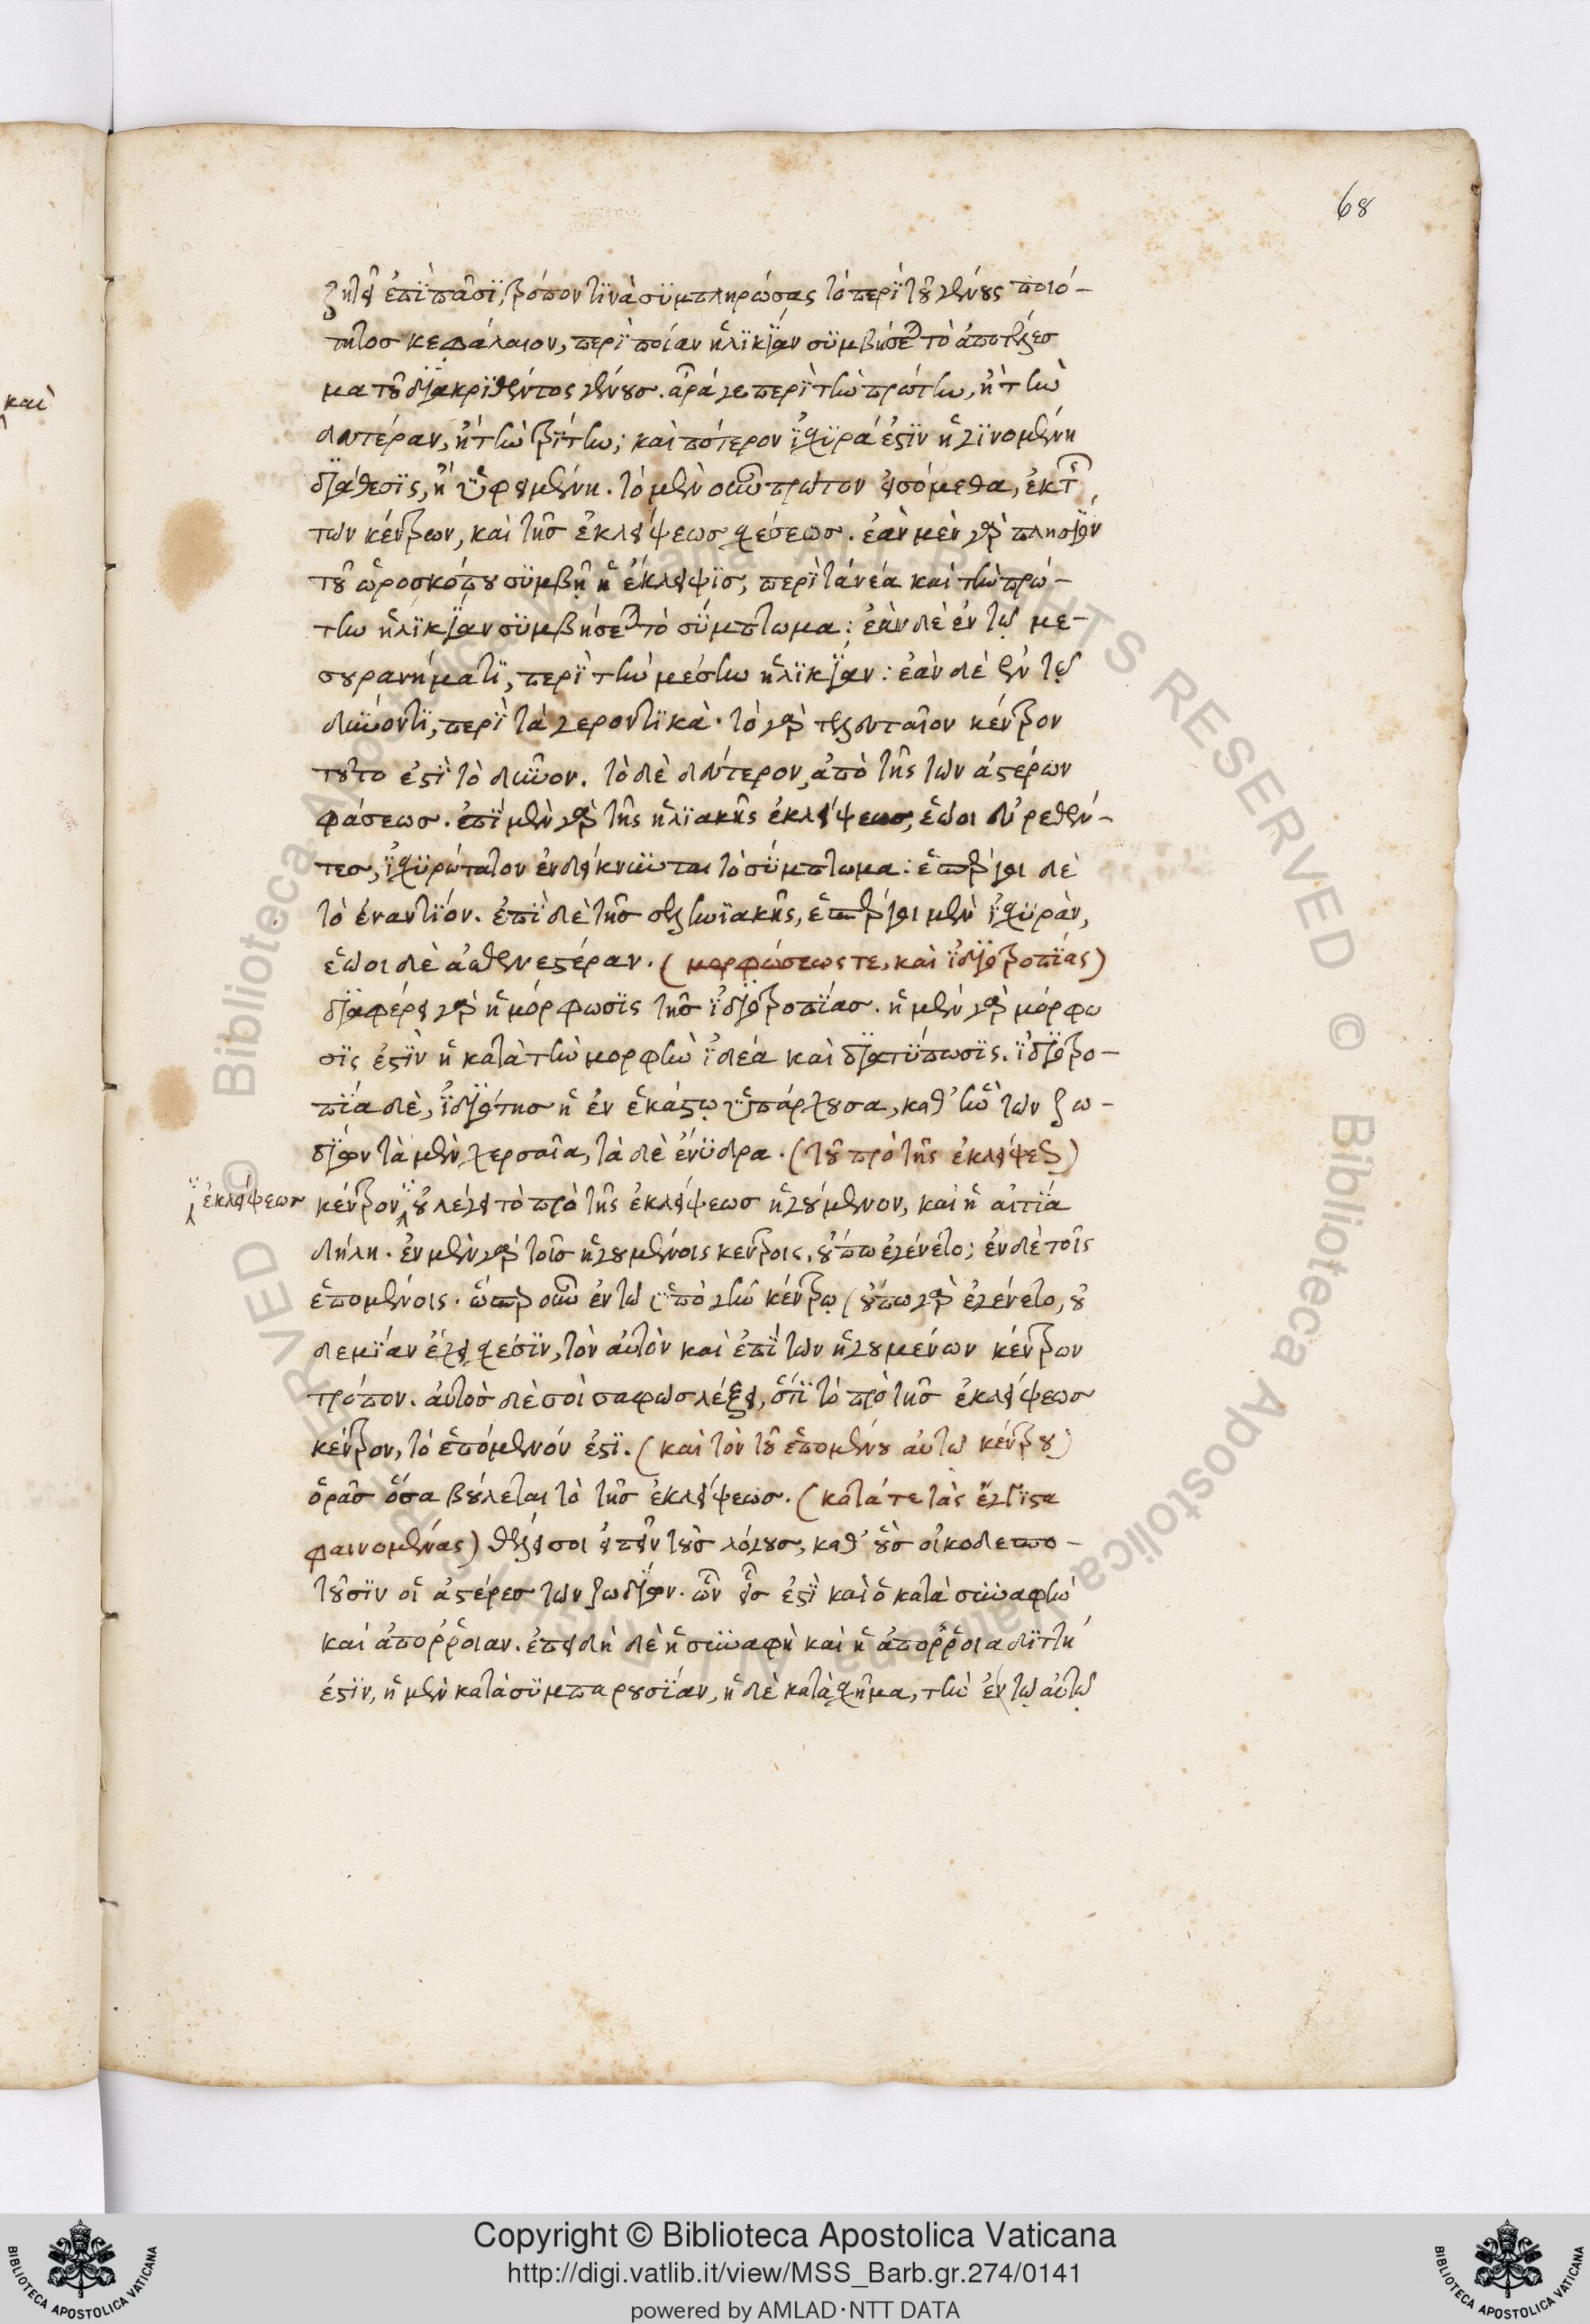 68
καὶ
ζητεῖ ἐπὶ πᾶσϊ, τρόπον τϊνὰ συμπληρώσας τὸ περὶ τοῦ γένους ποιό-
τητος κεφάλαιον, περὶ ποίαν ἡλϊκϊαν συμβήσεται τὸ ἀποτέλεσ
μα τοῦ διακρϊθέντος γένους. ἆρά γε περὶ τὴν πρώτην, ἢ τὴν
δευτέραν, ἢ τὴν τρίτην; καὶ πότερον ἰσχυρά ἐστϊν ἡ γϊνομένη
διάθεσϊς, ἢ ὑφειμένη. τὸ μὲν οὖν πρῶτον εἰσόμεθα, ἐκ τῆς
τῶν κέντρων, καὶ τῆς ἐκλείψεως σχέσεως. ἐὰν μὲν γὰρ πλησίον
τοῦ ὡροσκόπου συμβῇ ἡ ἔκλειψϊς, περὶ τὰ νέα καὶ τὴν πρώ-
την ἡλϊκίαν συμβήσεται τὸ σύμπτωμα: ἐὰν δὲ ἐν τῷ με-
σουρανήματϊ, περὶ τὴν μέσην ἡλϊκίαν: ἐὰν δὲ ἐν τῷ
δύνοντϊ, περὶ τὰ γεροντϊκὰ. τὸ γὰρ τελευταῖον κέντρον
τοῦτο ἐστὶ τὸ δῦνον. τὸ δὲ δεύτερον, ἀπὸ τῆς τῶν ἀστέρων
φάσεως. ἐπὶ μὲν γὰρ τῆς ἡλϊακῆς ἐκλείψεως, ἑῷοι εὑρεθέν-
τες, ἰσχυρώτατον ἐνδείκνυνται τὸ σύμπτωμα: ἑσπέριοι δὲ
τὸ ἐναντίον. ἐπὶ δὲ τῆς σεληνϊακῆς, ἑσπέριοι μὲν ἰσχυρὰν,
ἑῷοι δὲ ἀσθενεστέραν. (μορφώσεως τε, καὶ ἰδιοτροπίας)
διαφέρει γὰρ ἡ μόρφωσϊς τῆς ἰδιοτροπίας. ἡ μὲν γὰρ μόρφω
σϊς ἐστϊν ἡ κατὰ τὴν μορφὴν ἰδέα καὶ διατύπωσϊς. ἰδιοτρο-
πία δὲ, ἰδιότης ἡ ἐν ἑκάστῳ ὑπάρχουσα, καθ' ἣν τῶν ζω-
δίων τὰ μὲν χερσαῖα, τὰ δὲ ἔνυδρα. (τοῦ πρὸ τῆς ἐκλείψεως)
ἐκλείψεως
κέντρον οὐ λέγει τὸ πρὸ τῆς ἐκλείψεως ἡγούμενον, καὶ ἡ αἰτία
δήλη. ἐν μὲν γὰρ τοῖς ἡγουμένοις κέντροις, οὔπω ἐγένετο; ἐν δὲ τοῖς
ἑπομένοις. ὥσπερ οὖν ἐν τῷ ὑπὸ γῆν κέντρῳ (οὔπω γὰρ ἐγένετο, οὐ
δεμίαν ἔχει σχέσϊν, τὸν αὐτὸν καὶ ἐπὶ τῶν ἡγουμένων κέντρων
τρόπον. αὐτὸς δὲ σοὶ σαφῶς λέξει, ὅτι τὸ πρὸ τῆς ἐκλείψεως
κέντρον, τὸ ἑπόμενόν ἐστϊ. (καὶ τὸν τοῦ ἑπομένου αὐτῷ κέντρου)
ὁρᾷς ὅσα βούλεται τὸ τῆς ἐκλείψεως. (κατά τε τὰς ἔγγϊστα
φαινομένας) θέλει σοι εἰπεῖν τοὺς λόγους, καθ' οὓς οἰκοδεσπο-
τοῦσϊν οἱ ἀστέρες τῶν ζωδίων. ὧν εἷς ἐστὶ καὶ ὁ κατὰ συναφὴν
καὶ ἀπόῤῥοιαν. ἐπειδὴ δὲ ἡ συναφὴ καὶ ἡ ἀπόῤῥοια διττή
ἐστϊν, ἡ μὲν κατὰ συμπαρουσίαν, ἡ δὲ κατὰ σχῆμα, τὴν ἐν τῷ αὐτῷ
Copyright © Biblioteca Apostolica Vaticana
http://digi.vatlib.it/view/MSS_Barb.gr.274/0141
powered by AMLAD·NTT DATA